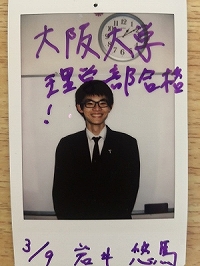 大阪大学
理学部合格
!
3/9 岩井 悠馬